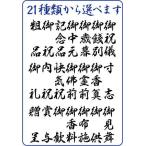 21種類から選べます
御祝儀
御餞別
御歳暮
御中元
記念品
御祝
粗品
寸志
御香奠
御霊前
御仏前
快気祝
内祝
御礼
御見舞
御供
御布施
御香料
御
賞与
贈呈